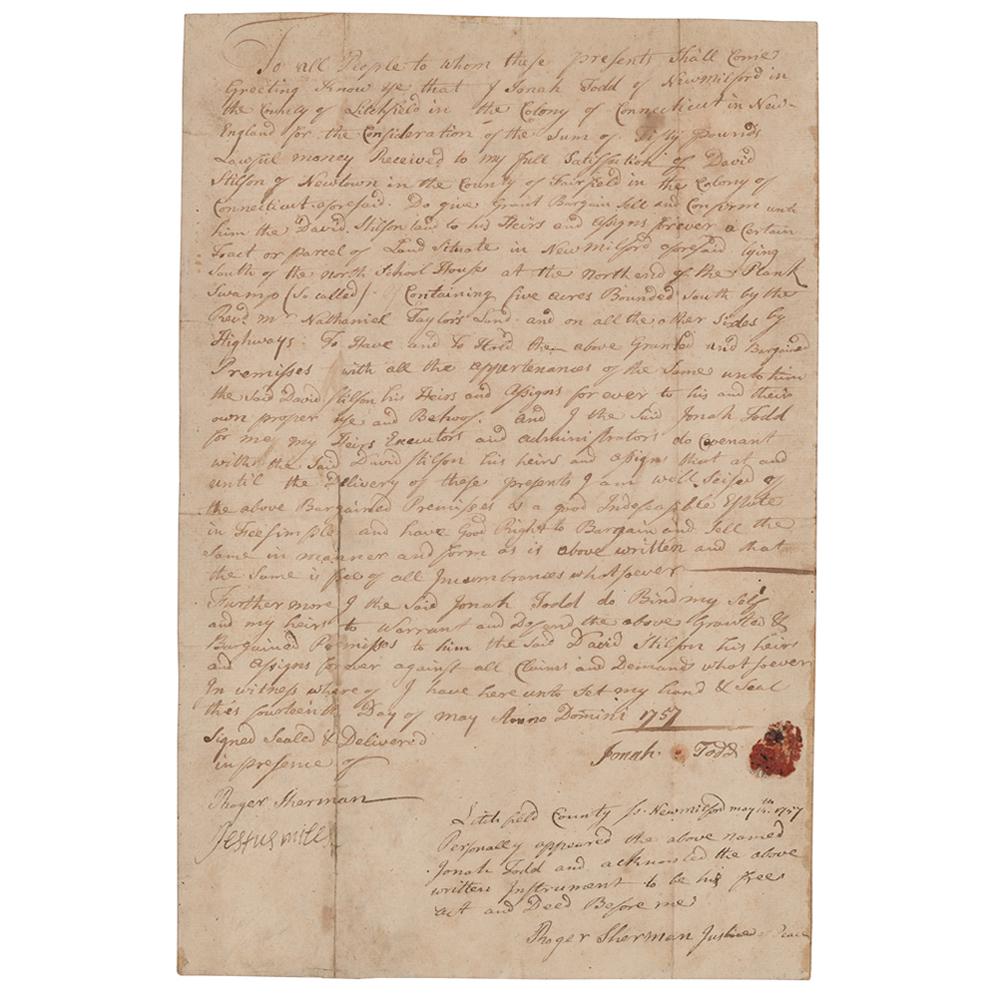 To all People to whom these presents Shall Come
Greeting Know ye that I Jonah Todd of New milford in
the County of Litchfield in the Colony of Connecticut in New-
England for the Consideration of the Sum of Fifty Pounds
Lawful money Received to my full Satisfaction of David
Stilson of Newtown in the County of Fairfield in the Colony of
Connecticut aforesaid. Do give Grant Bargain Sell and Confirm unto
him the David Stilson and to his Heirs and assigns forever a Certain
Tract or Parcel of Land Situate in New milford aforesaid lying
South of the north School House at the North end of the Plank
Swamp (So called) Containing five acres Bounded South by the
Revd. mr Nathaniel Taylor's Land and on all the other Sides by
Highways. To Have and to Hold the above Granted and Bargained
Premisses with all the appertenances of the Same unto him
the said David Stilson his Heirs and assigns for ever to his and their
own proper use and Behoof. And I the Said Jonah Todd
for me my Heirs Executors and administrators do Covenant
with the Said David Stilson his heirs and assigns that at and
until the Delivery of these presents I am well Seised of
the above Bargained Premisses as a good Indefeasible Estate
in Feesimple and have Good Right to Bargain and Sell the
Same in manner and form as is above written and that
the Same is free of all Incumbrances whatsoever
Furthermore I the Said Jonah Todd do Bind my Self
and my heirs to Warrant and Defend the above Granted &
Bargained Premisses to him the said David Stilson his heirs
and assigns forever against all Claims and Demands whatsoever
In witness whereof I have here unto Set my hand & Seal
this fourteenth Day of may Anno Domini 1757
Signed Sealed & Delivered
in presence of
Jonah Todd
Roger Sherman
Litchfield County Ss. New milford may 14th. 1757
Personally appeared the above named
Jonah Todd and acknowled the above
written Instrument to be his free
act and Deed Before me
Roger Sherman Justice of Peace